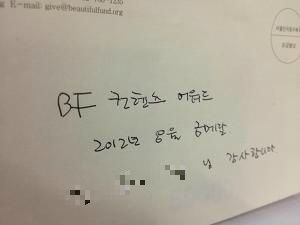 E-mail: give@beautifulfund.org
BF 컨텐츠 어워드
2012년 응원 금메달
님 감사합니다